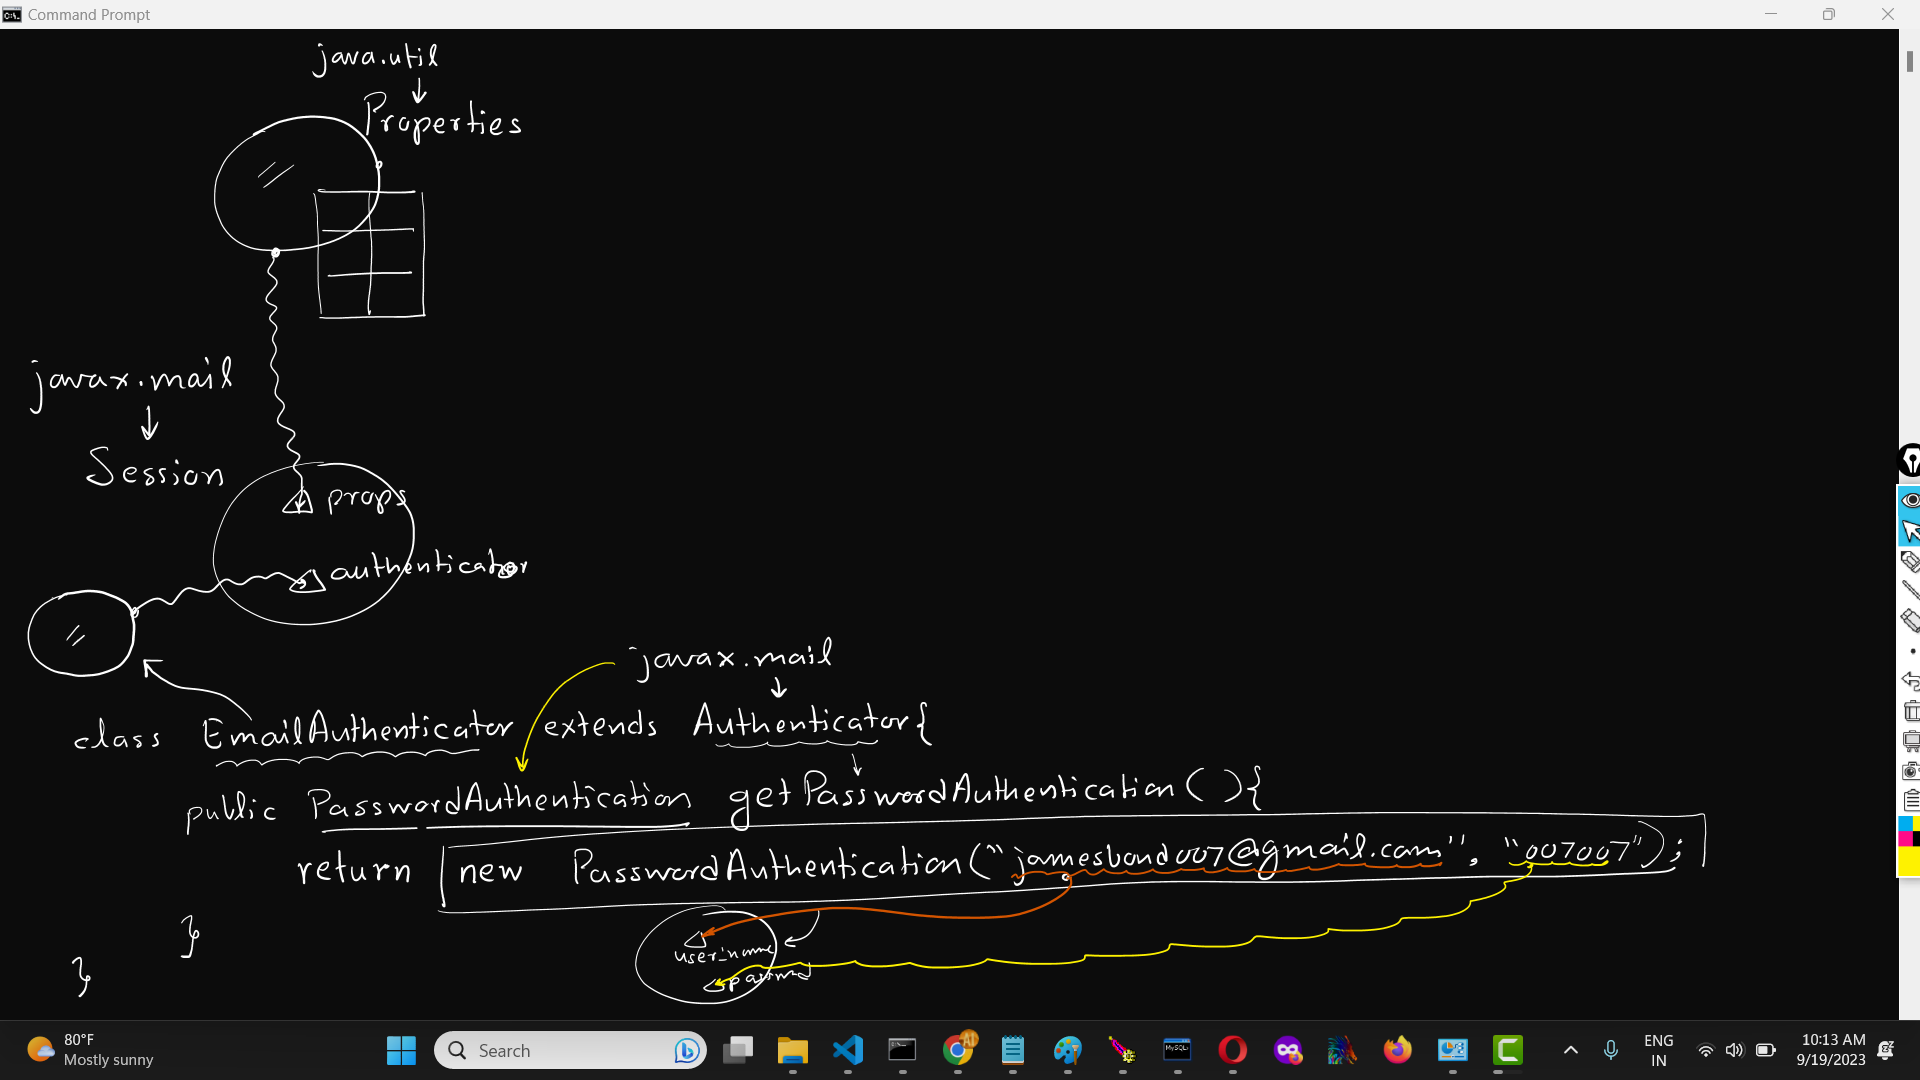 Command Prompt
java.util
Properties
javax.mail
Session
props
authenticator
javax.mail
class EmailAuthenticator extends Authenticator{
public PasswordAuthentication getPasswordAuthentication( ){
return new PasswordAuthentication("jamesbond007@gmail.com", "007007");
}
user_name
}
80°F
Mostly sunny
Search
ENG
IN
10:13 AM
9/19/2023